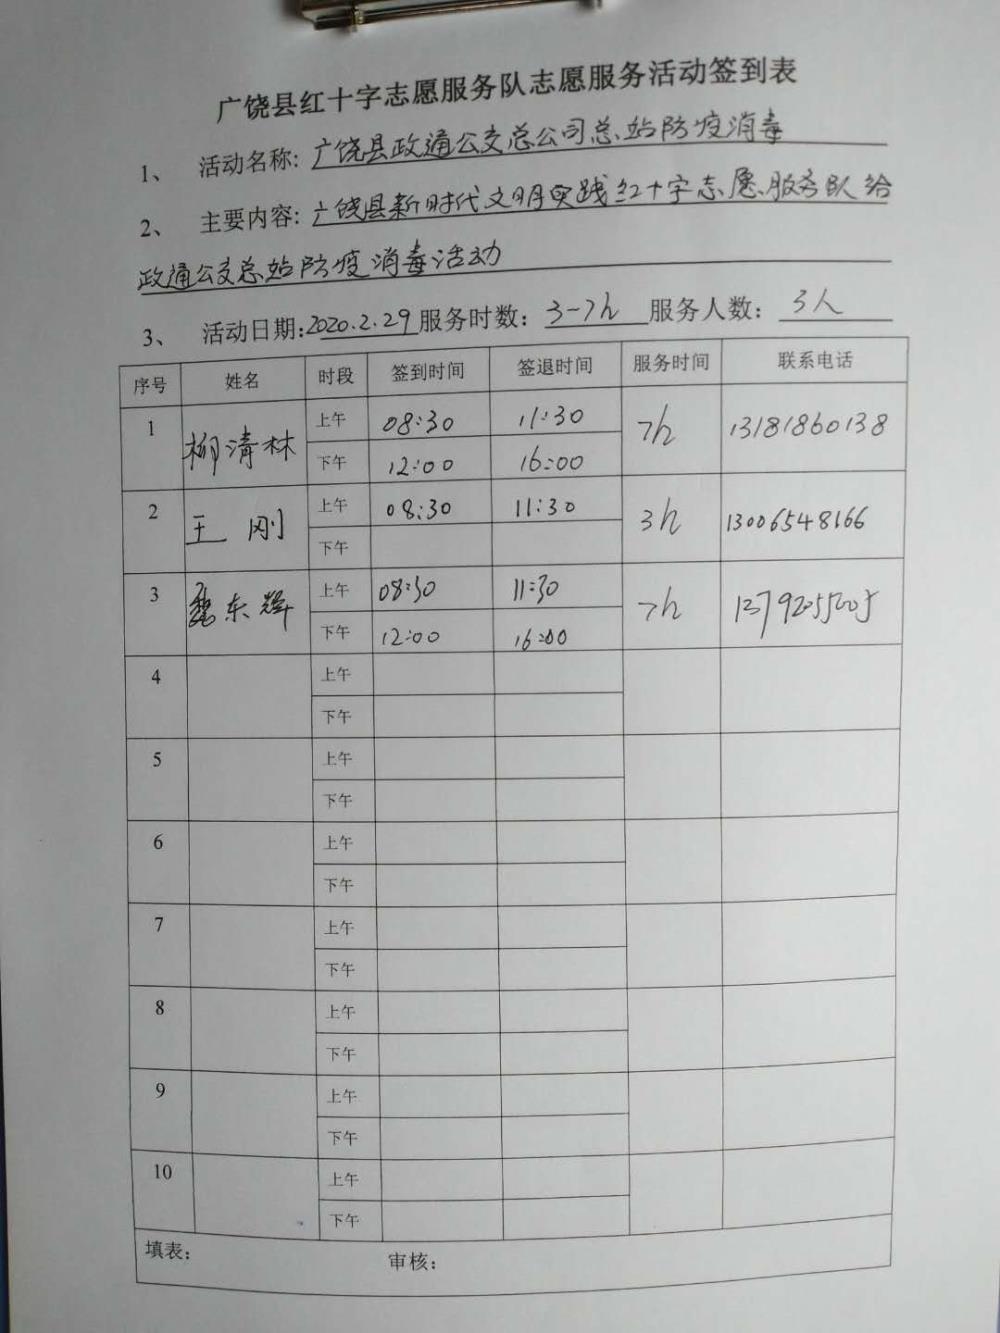 广饶县红十字志愿服务队志愿服务活动签到表
1、 活动名称: 广饶县政通公交总公司总站防疫消毒
2、 主要内容: 广饶县新时代文明实践红十字志愿服务队给
政通公交总站防疫消毒活动
3、 活动日期: 2020.2.29 服务时数: 3-7h 服务人数: 3人
序号 姓名 时段 签到时间 签退时间 服务时间 联系电话
1 柳清林 上午 08:30 11:30 7h 13181860138
下午 12:00 16:00
2 王刚 上午 08:30 11:30 3h 13006548166
下午
3 魏东辉 上午 08:30 11:30 7h
下午 12:00 16:00
4 上午
下午
5 上午
下午
6 上午
下午
7 上午
下午
8 上午
下午
9 上午
下午
10 上午
下午
填表: 审核: